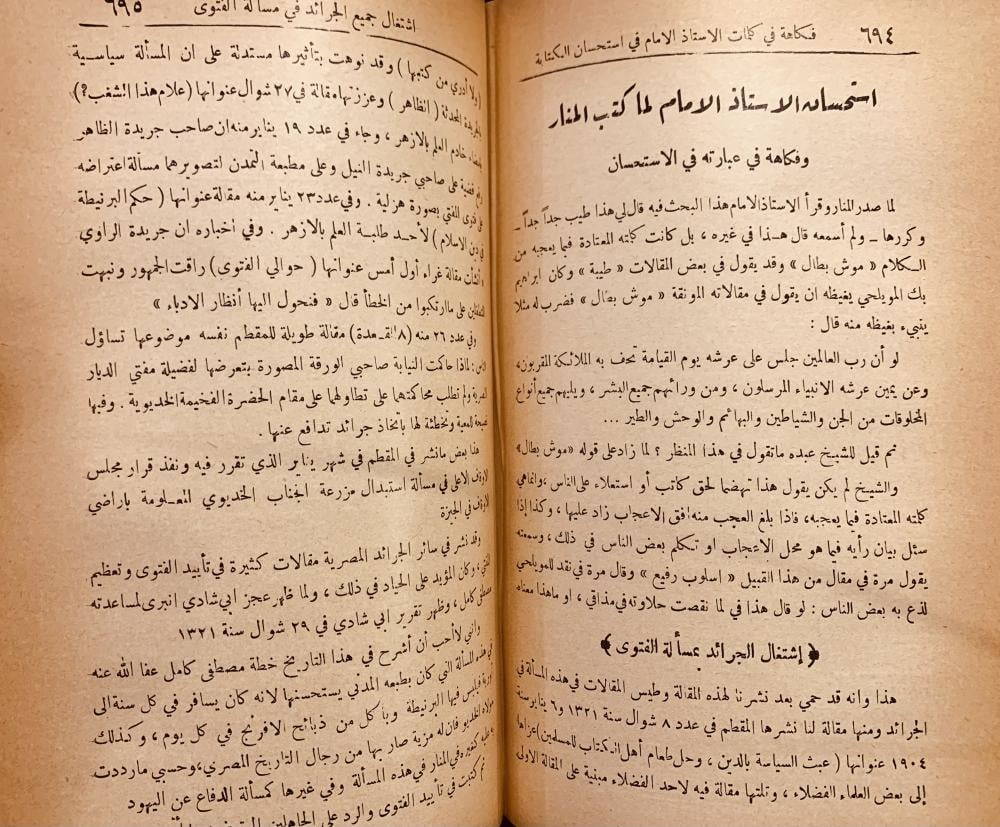 ٦٩٤ فكاهة في كلمات الاستاذ الامام في استحسان الكتابة
استحسان الاستاذ الامام لما كتب المنار
وفكاهة في عبارته في الاستحسان
لما صدر المنار وقرأ الاستاذ الامام هذا البحث فيه قال لي هذا طيب جداً جداً ـ
وكررها ـ ولم أسمعه قال هـذا في غيره ، بل كانت كلمته المعتادة فيما يعجبه من
الكلام « موش بطال » وقد يقول في بعض المقالات « طيبة » وكان ابراهيم
بك المويلحي يغيظه ان يقول في مقالاته المونقة « موش بطال » فضرب له مثلا
ينبيء بغيظه منه قال :
لو أن رب العالمين جلس على عرشه يوم القيامة تحف به الملائكة المقربون،
وعن يمين عرشه الانبياء المرسلون ، ومن ورائهم جميع البشر ، ويليهم جميع أنواع
المخلوقات من الجن والشياطين والبهائم والوحش والطير ...
ثم قيل للشيخ عبده ماتقول في هذا المنظر ؟ لما زاد على قوله «موش بطال»
والشيخ لم يكن يقول هذا تهضما لحق كاتب أو استعلاء على الناس ، وانما هي
كلمته المعتادة فيما يعجبه، فاذا بلغ العجب منه أفق الاعجاب زاد عليها ، وكذا إذا
سئل بيان رأيه فيما هو محل الاعجاب او تكلم بعض الناس في ذلك ، وسمعته
يقول مرة في مقال من هذا القبيل « اسلوب رفيع » وقال مرة في نقد للمويلحي
لذع به بعض الناس : لو قال هذا في لما نقصت حلاوته في مذاقي ، او ماهذا معناه
﴿ إشتغال الجرائد بمسألة الفتوى ﴾
هذا وانه قد حمي بعد نشرنا لهذه المقالة وطيس المقالات في هذه المسألة في
الجرائد ومنها مقالة لنا نشرها المقطم في عدد ٨ شوال سنة ١٣٢١ و٦ يناير سنة
١٩٠٤ عنوانها ( عبث السياسة بالدين ، وحل طعام أهل الكتاب للمسلمين) عزاها
إلى بعض العلماء الفضلاء ، وتلتها مقالة فيه لاحد الفضلاء مبنية على المقالة الاولى
اشتغال جميع الجرائد في مسألة الفتوى ٦٩٥
( ولا أدري من كتبها ) وقد نوهت بتأثيرها مستدلة على ان المسألة سياسية
الجريدة المحدثة ( الظاهر ) وعززتها مقالة في ٢٧ شوال عنوانها (علام هذا الشغب؟)
خادم العلم بالازهر ، وجاء في عدد ١٩ يناير منه ان صاحب جريدة الظاهر
رفع قضية على صاحبي جريدة النيل وعلى مطبعة التمدن لتصويرهما مسألة اعتراضه
على فتوى المفتي بصورة هزلية . وفي عدد ٢٣ يناير منه مقالة عنوانها ( حكم البرنيطة
في دين الاسلام ) لأحد طلبة العلم بالازهر . وفي أخباره ان جريدة الراوي
أنشأت مقالة غراء أول أمس عنوانها ( حوالي الفتوى) راقت الجمهور ونبهت
على ماارتكبوا من الخطأ قال « فنحول اليها أنظار الادباء »
وفي عدد ٢٦ منه (٨ القعدة) مقالة طويلة للمقطم نفسه موضوعها تساؤل
الناس : لماذا حاكمت النيابة صاحبي الورقة المصورة بتعرضها لفضيلة مفتي الديار
المصرية ولم تطلب محاكمتها على تطاولها على مقام الحضرة الفخيمة الخديوية . وفيها
للمعية وتخطئة لها باتخاذ جرائد تدافع عنها .
هذا بعض مانشر في المقطم في شهر يناير الذي تقرر فيه ونفذ قرار مجلس
الاوقاف الاعلى في مسألة استبدال مزرعة الجناب الخديوي المعلومة باراضي
الاوقاف في الجيزة
وقد نشر في سائر الجرائد المصرية مقالات كثيرة في تأييد الفتوى وتعظيم
المفتي ، وكان المؤيد على الحياد في ذلك ، ولما ظهر عجز ابي شادي انبرى لمساعدته
مصطفى كامل ، وظهر تقرير ابي شادي في ٢٩ شوال سنة ١٣٢١
وانني لاأحب أن أشرح في هذا التاريخ خطة مصطفى كامل عفا الله عنه
في هذه المسألة التي كان بطبعه المدني يستحسنها لانه كان يسافر في كل سنة الى
فيلبس فيها البرنيطة وبأكل من ذبائح الافرنج في كل يوم ، وكذلك
فان له مزية صار بها من رجال التاريخ المصري، وحسبي مارددت
وفي المنار في هذه المسألة وفي غيرها كمسألة الدفاع عن اليهود
ثم كتبت في تأييد الفتوى والرد على الجاهلين